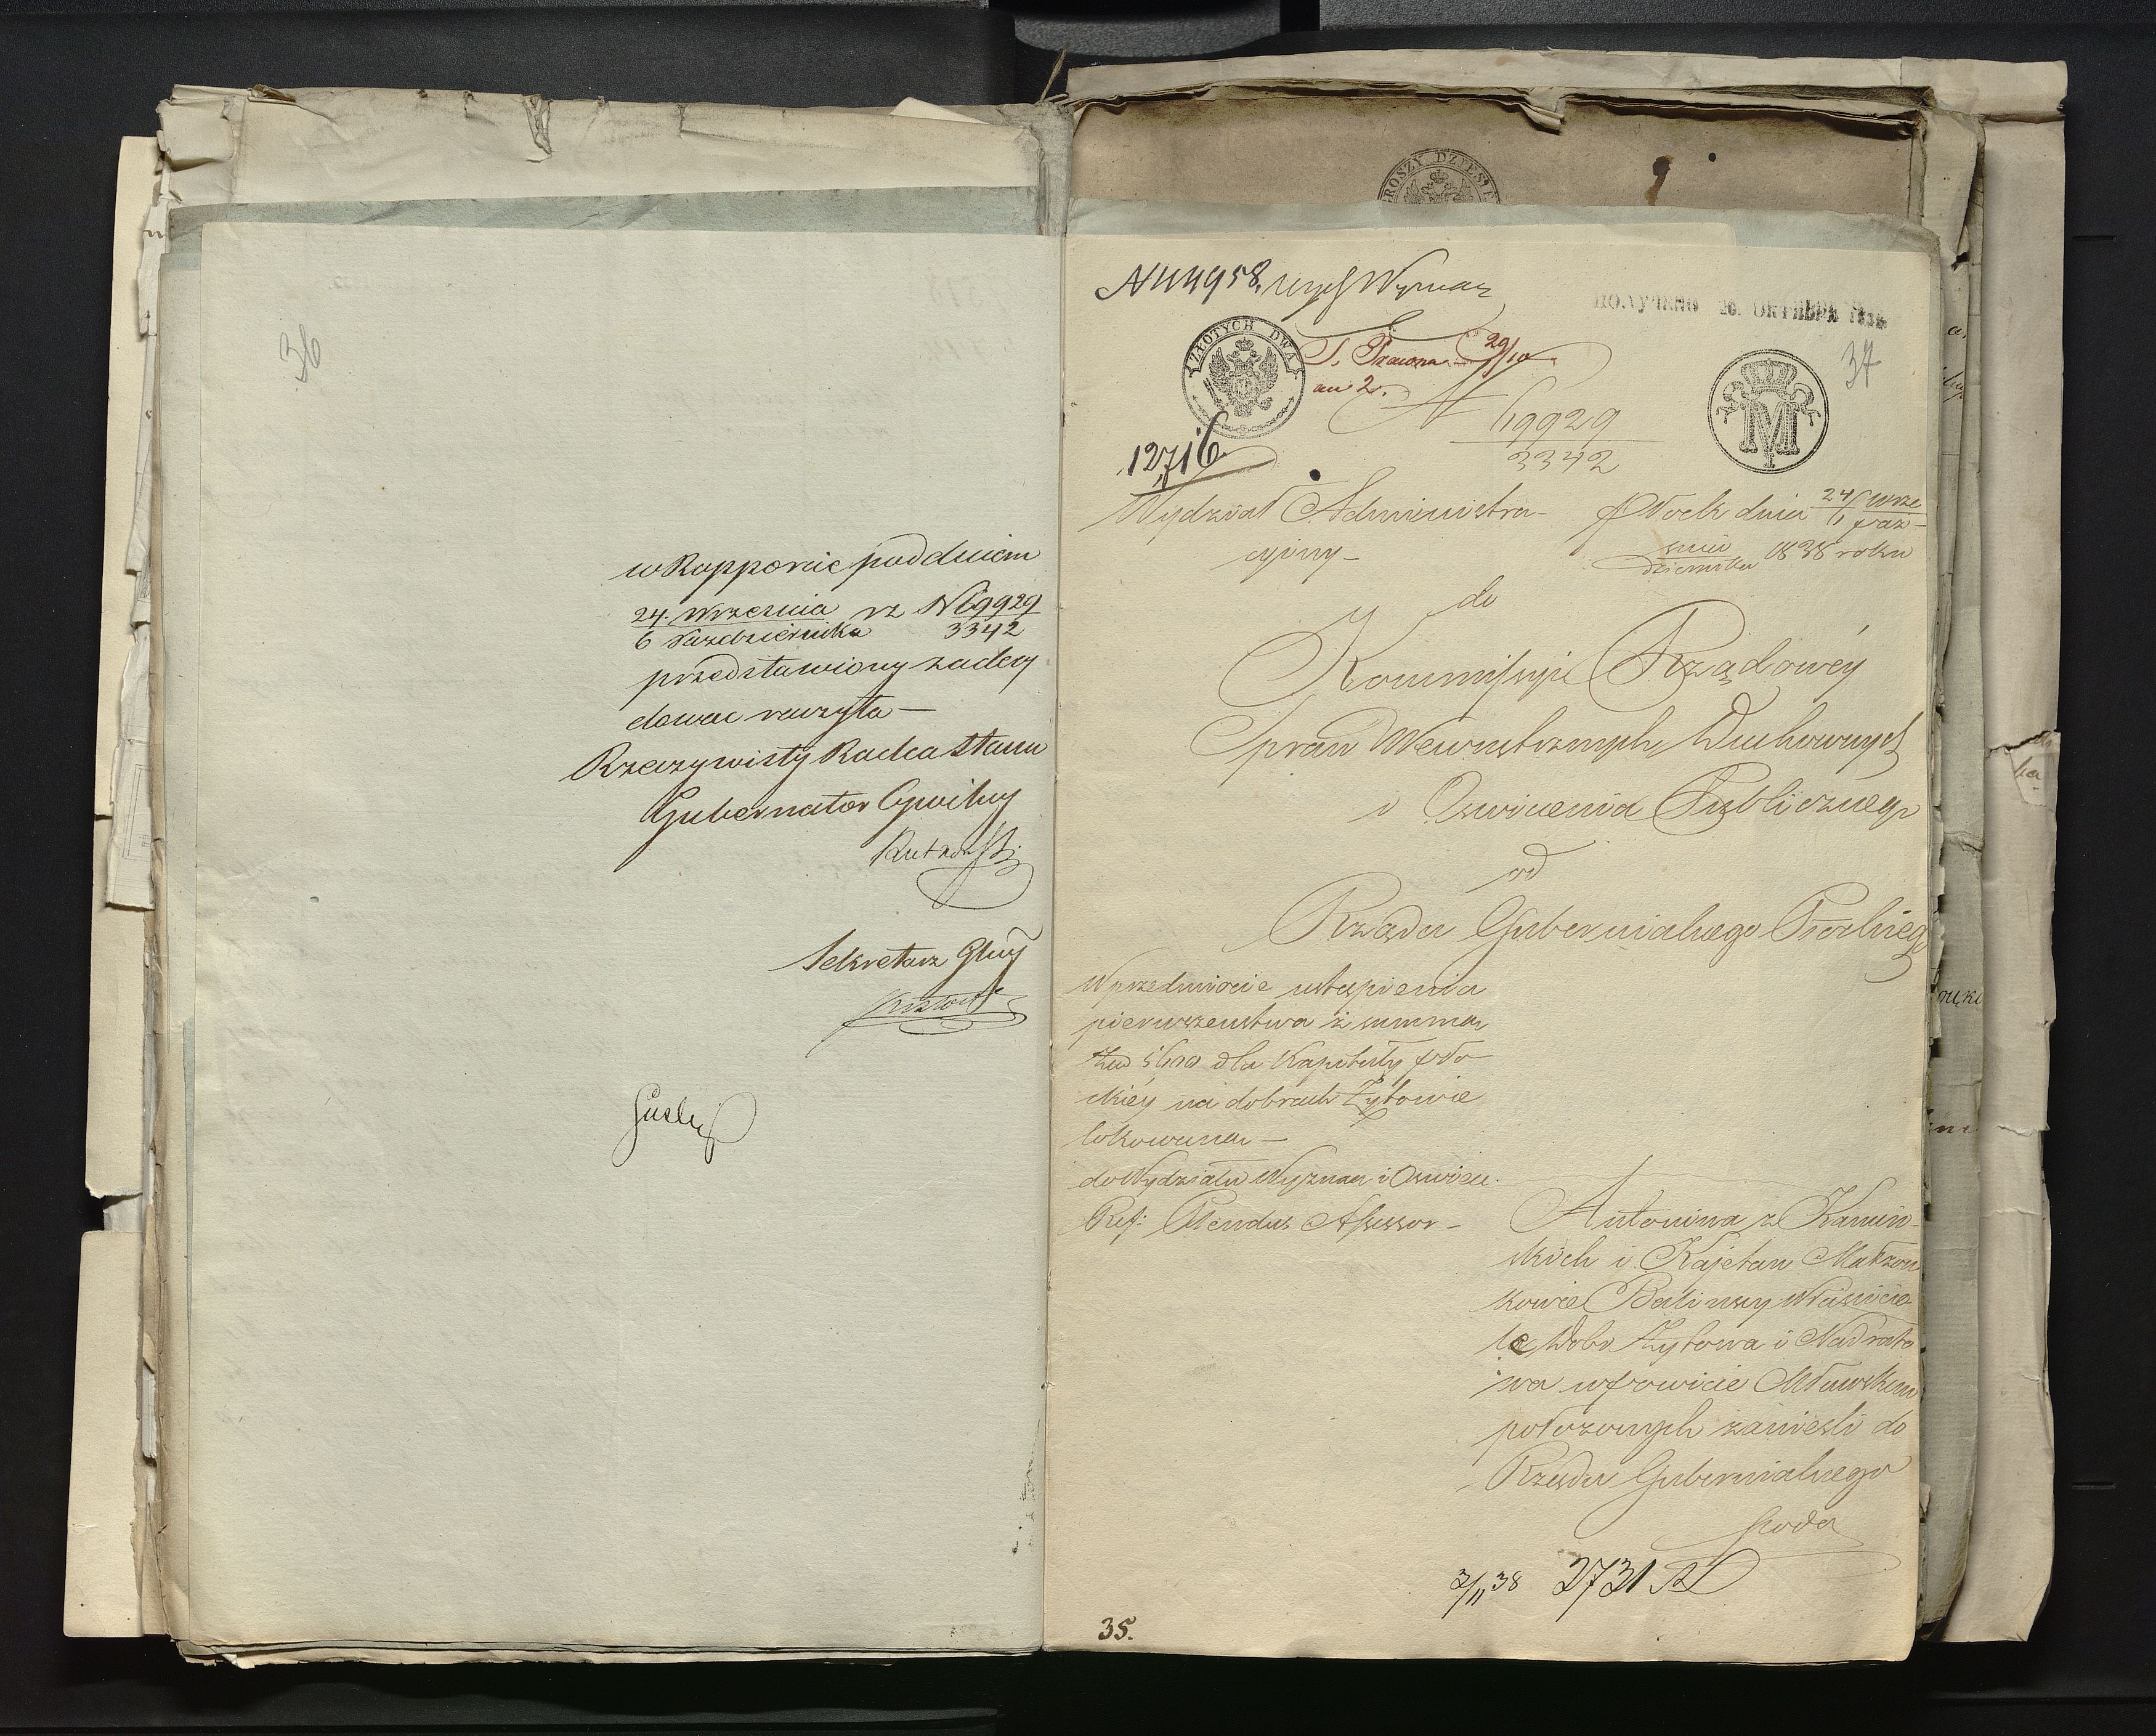 36
w Rapporcie pod dniem
24. Września rz N 69929
6 Października 3342
przedstawiony zadecy
dować raczyła —
Rzeczywisty Radca Stanu
Gubernator Cywilny
Sekretarz Głny
ROSZY DZIESIĘ
N 14958
ПОЛУЧЕНО 26. ОКТЯБРЯ 1838
ZŁOTYCH DWA
29/10
au 2.
37
M
I
N 69929
3342
12716
Wydział Administra-
cyiny —
Płock dnia 24/6 Wrze
Paź-
śnia
dziernika 1838 roku
do
Kommissyi Rządowéy
Spraw Wewnętrznych Duchownych
i Oświecenia Publicznego
od
Rządu Gubernialnego Płockiego
W przedmiocie ustąpienia
pierwszeństwa z summą
dla Kapituły Pło
ckiéy na dobrach Żytowie
lokowaną —
do Wydziału Wyznań i Oświec.
Ref: Assessor —
Antonina z Kamiń-
skich i Kajetan Małżon
kowie Balińscy Właścicie
le Dobr Żytowa i Nadrato
wa w Powiecie Mławskim
położonych zanieśli do
Rządu Gubernialnego
3/11 38 2731
35.